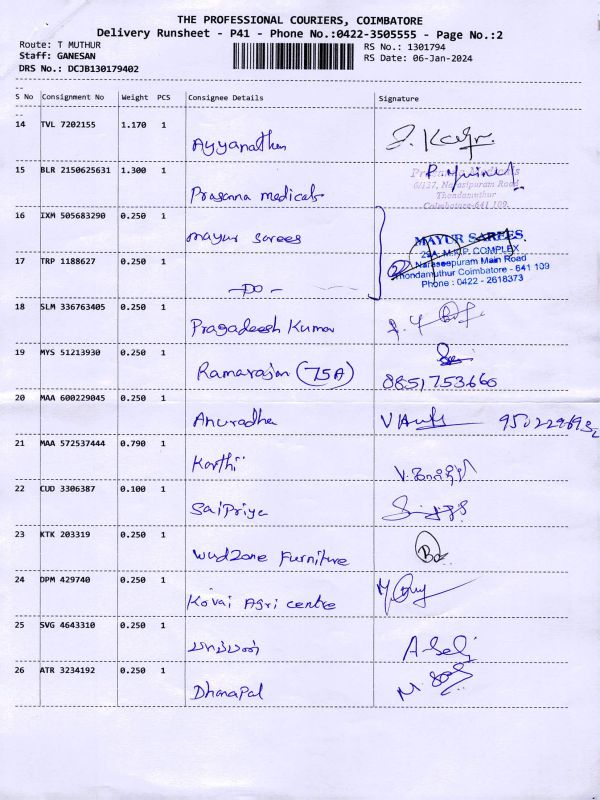 THE PROFESSIONAL COURIERS, COIMBATORE
Delivery Runsheet - P41 - Phone No.:0422-3505555 - Page No.:2
Route: T MUTHUR
RS No.: 1301794
Staff: GANESAN
RS Date: 06-Jan-2024
DRS No.: DCJB130179402
S No Consignment No Weight PCS Consignee Details Signature
14 TVL 7202155 1.170 1
Ayyanathan
15 BLR 2150625631 1.300 1
Prasanna medicals
6/127, Narasipuram Road
Thondamuthur
Coimbatore-641 109.
16 IXM 505683290 0.250 1
mayur sarees
MAYUR SAREES
29A, M.M.P. COMPLEX
Naraseepuram Main Road
Thondamuthur Coimbatore - 641 109
Phone : 0422 - 2618373
17 TRP 1188627 0.250 1
-DO-
18 SLM 336763405 0.250 1
Pragadeesh Kumar
19 MYS 51213930 0.250 1
Ramarajan (75A)
8851753660
20 MAA 600229045 0.250 1
Anuradha
21 MAA 572537444 0.790 1
Karthi
22 CUD 3306387 0.100 1
SaiPriya
23 KTK 203319 0.250 1
WudZone Furniture
24 DPM 429740 0.250 1
Kovai Agri centre
25 SVG 4643310 0.250 1
26 ATR 3234192 0.250 1
Dhanapal